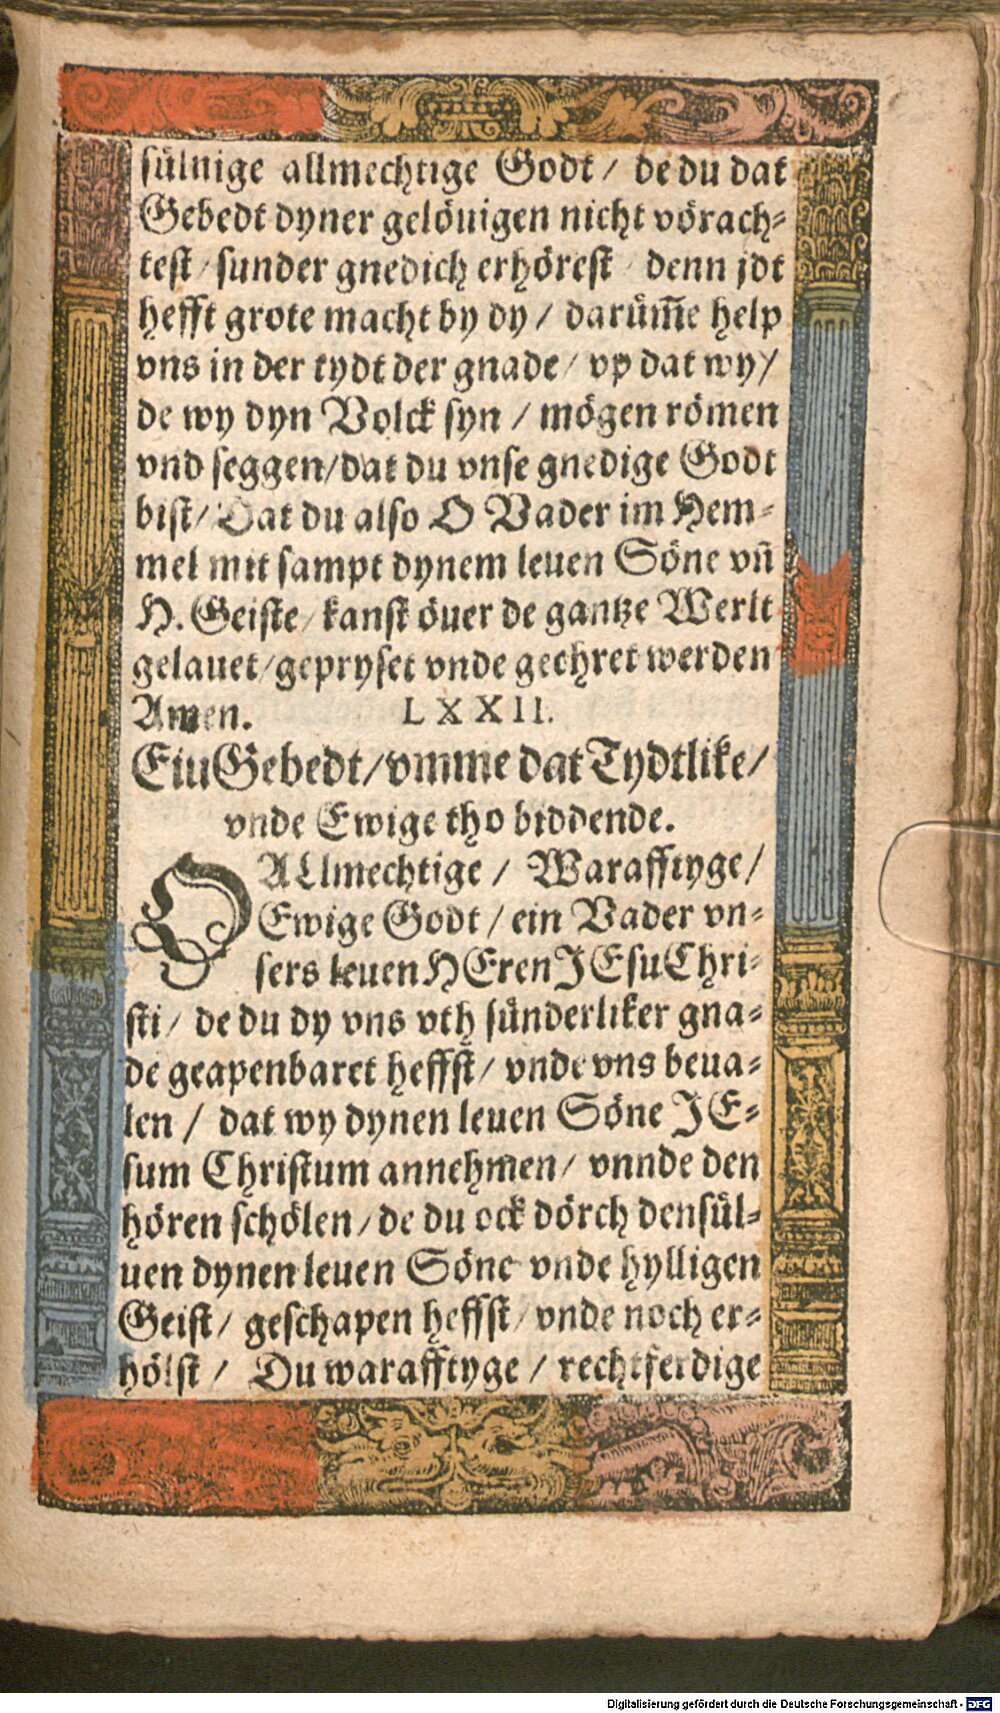 sülnige allmechtige Godt / de du dat
Gebedt dyner gelöuigen nicht vörach⸗
test / sunder gnedich erhörest / denn jdt
hefft grote macht by dy / darüm̄e help
vns in der tydt der gnade / vp dat wy /
de wy dyn Volck syn / mögen römen
vnd seggen/dat du vnse gnedige Godt
bist / Dat du also O Vader im Hem⸗
mel mit sampt dynem leuen Söne vn̄
H. Geiste / kanst öuer de gantze Werlt
gelauet/gepryset vnde geehret werden
Amen. LXXII.
Ein Gebedt/vmme dat Tydtlike/
vnde Ewige tho biddende.
O ALlmechtige / Warafftyge/
Ewige Godt / ein Vader vn⸗
sers leuen HEren JEsu Chri⸗
sti / de du dy vns vth sünderliker gna⸗
de geapenbaret heffst / vnde vns beua⸗
len / dat wy dynen leuen Söne JE⸗
sum Christum annehmen / vnnde den
hören schölen / de du ock dörch densül⸗
uen dynen leuen Söne vnde hylligen
Geist / geschapen heffst / vnde noch er⸗
hölst / Du warafftyge / rechtferdige
Digitalisierung gefördert durch die Deutsche Forschungsgemeinschaft - DFG